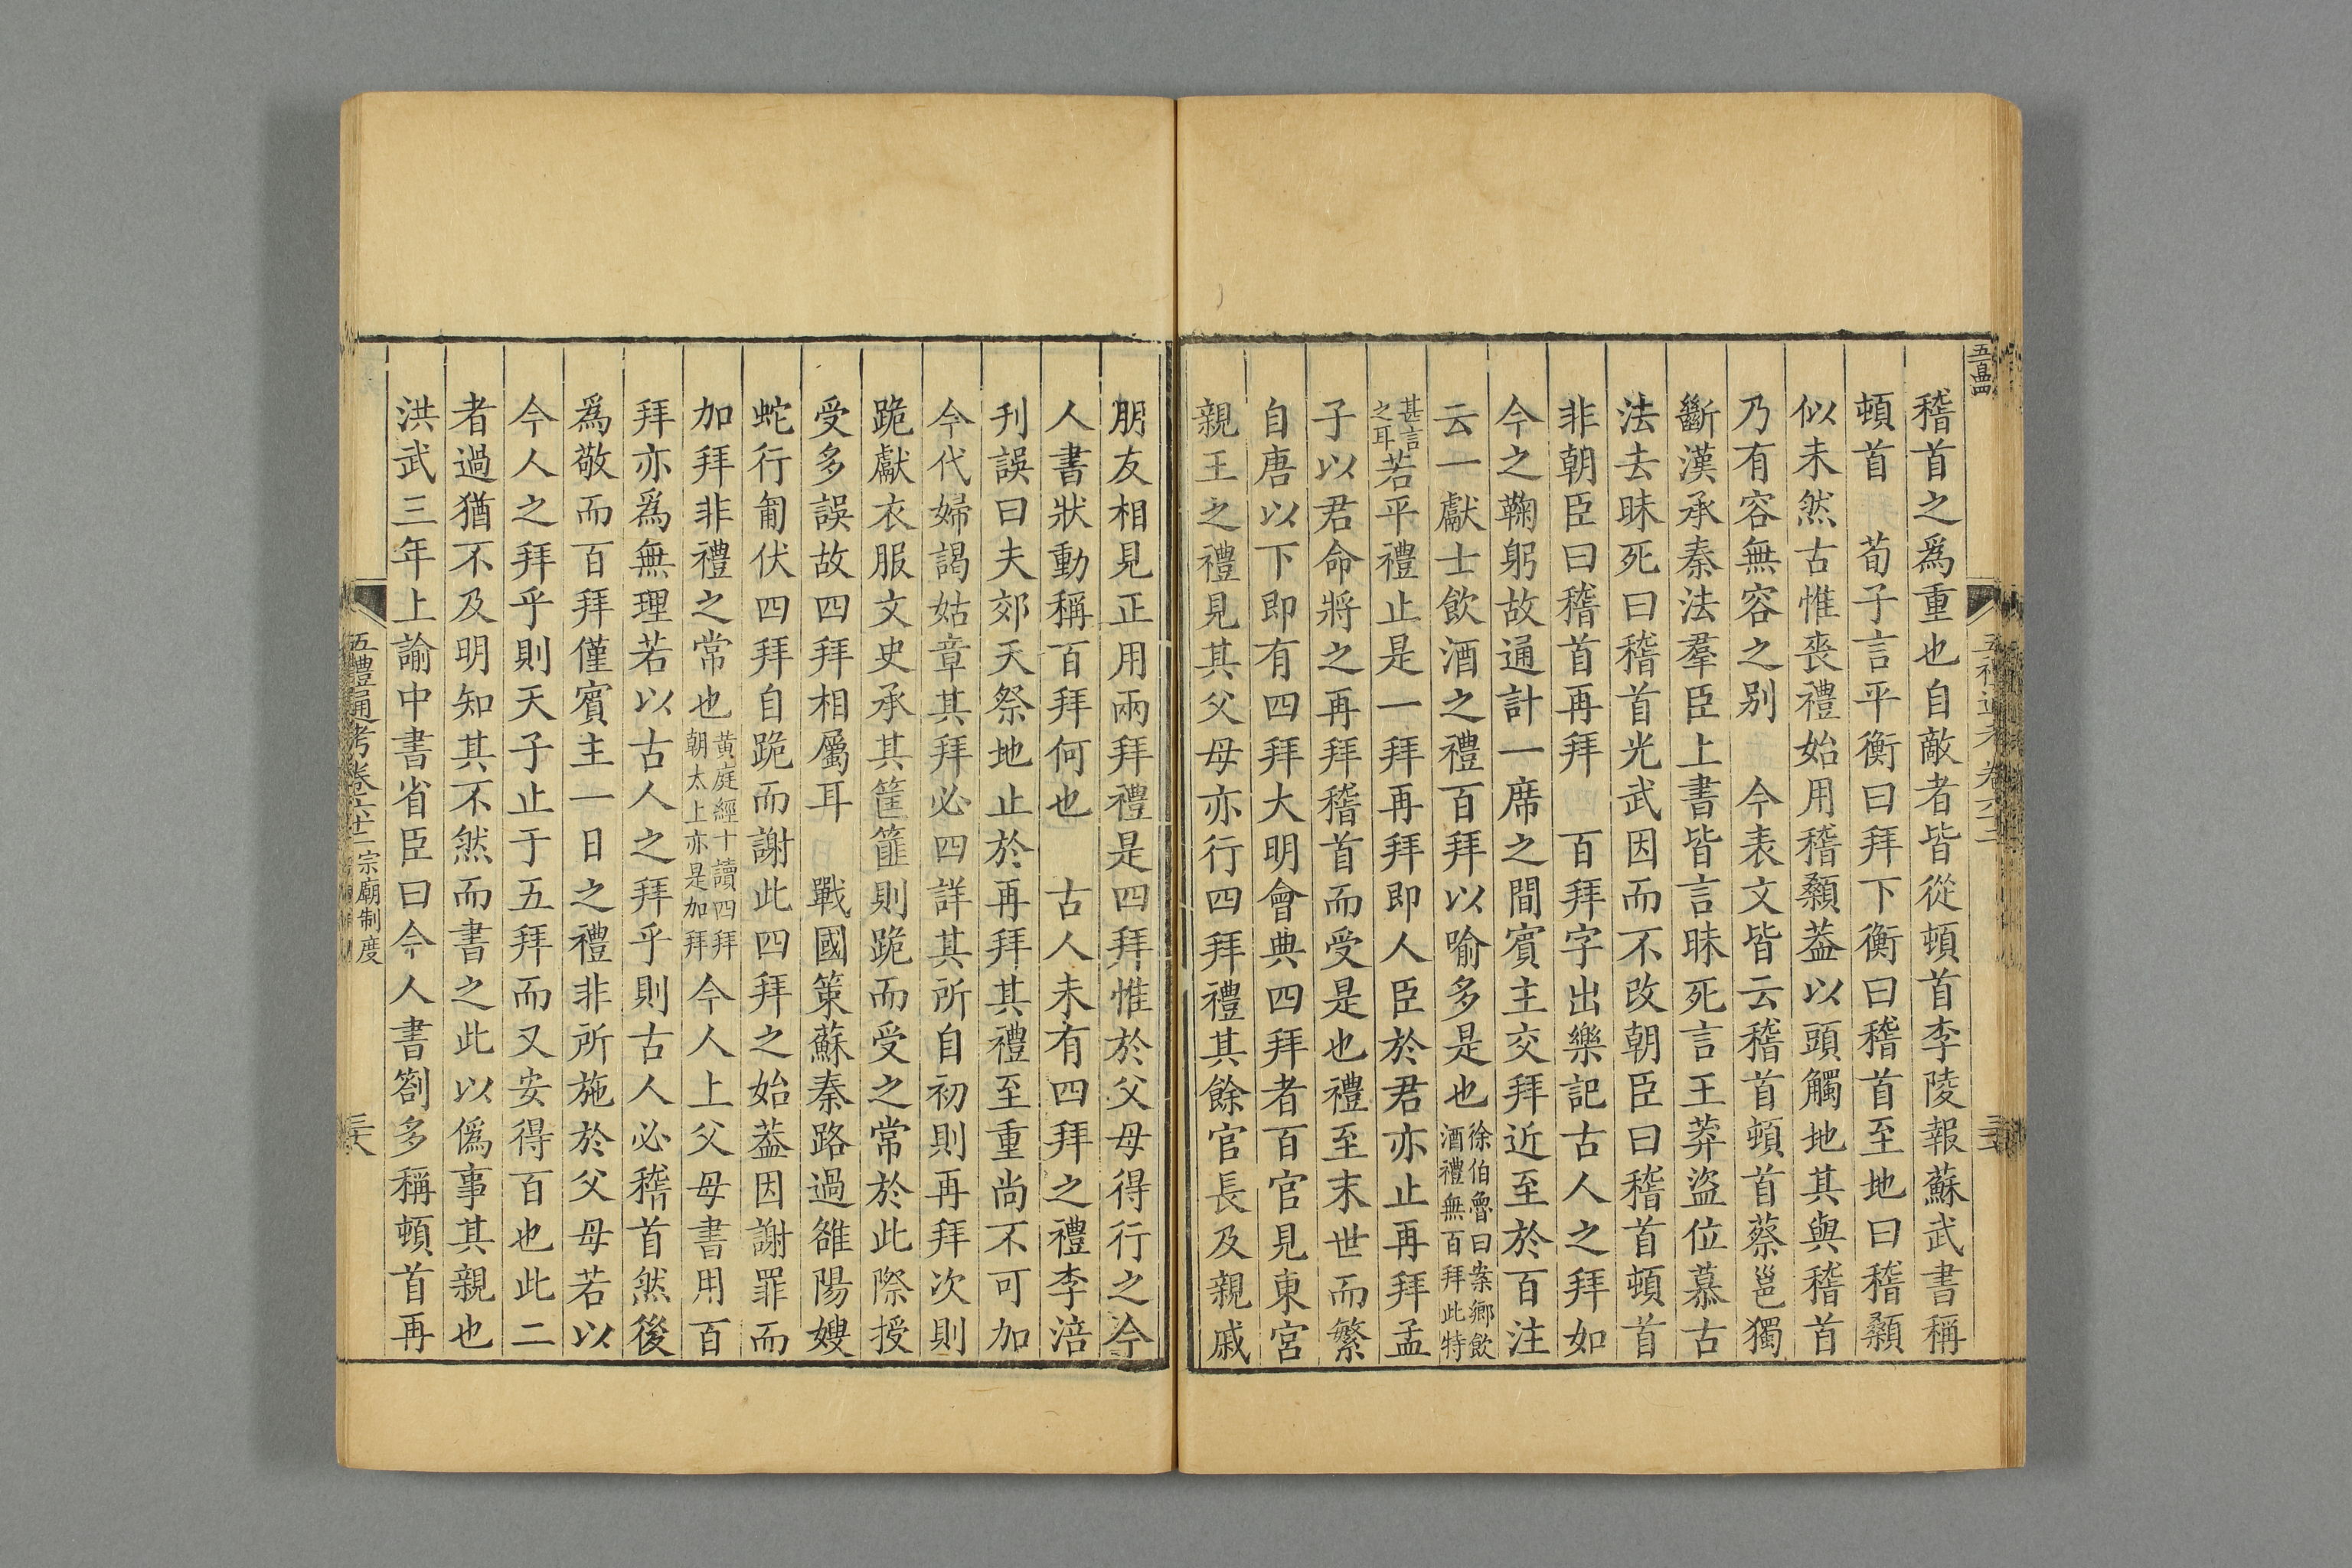 稽首之爲重也自敵者皆從頓首李陵報蘇武書稱
頓首　荀子言平衡曰拜下衡曰稽首至地曰稽顙
似未然古惟喪禮始用稽顙葢以頭觸地其與稽首
乃有容無容之别　今表文皆云稽首頓首蔡邕獨
斷漢承秦法羣臣上書皆言昧死言王莽盜位慕古
法去昧死曰稽首光武因而不改朝臣曰稽首頓首
非朝臣曰稽首再拜　百拜字出樂記古人之拜如
今之鞠躬故通計一席之間賓主交拜近至於百注
云一獻士飲酒之禮百拜以喻多是也徐伯魯曰案鄉飲酒禮無百拜此特
甚言之耳若平禮止是一拜再拜即人臣於君亦止再拜孟
子以君命將之再拜稽首而受是也禮至末世而繁
自唐以下即有四拜大明會典四拜者百官見東宮
親王之禮見其父母亦行四拜禮其餘官長及親戚
朋友相見正用兩拜禮是四拜惟於父母得行之今
人書狀動稱百拜何也　古人未有四拜之禮李涪
刊誤曰夫郊天祭地止於再拜其禮至重尚不可加
今代婦謁姑章其拜必四詳其所自初則再拜次則
跪獻衣服文史承其筐篚則跪而受之常於此際授
受多誤故四拜相屬耳　戰國策蘇秦路過雒陽嫂
蛇行匍伏四拜自跪而謝此四拜之始葢因謝罪而
加拜非禮之常也黄庭經十讀四拜朝太上亦是加拜今人上父母書用百
拜亦爲無理若以古人之拜乎則古人必稽首然後
爲敬而百拜僅賓主一日之禮非所施於父母若以
今人之拜乎則天子止于五拜而又安得百也此二
者過猶不及明知其不然而書之此以僞事其親也
洪武三年上諭中書省臣曰今人書劄多稱頓首再
五禮通考卷六十二　宗廟制度